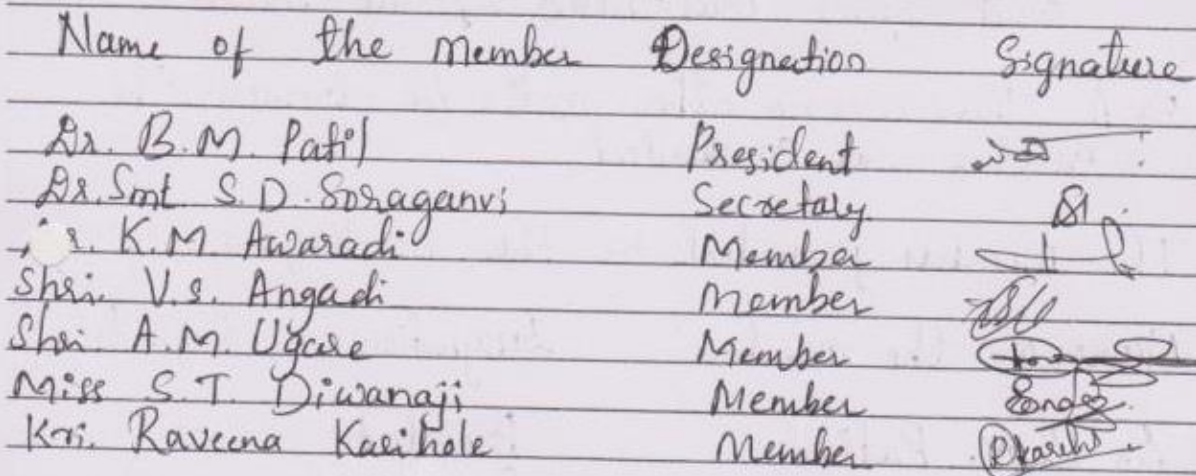 Name of the member Designation Signature
Dr. B.M. Patil President
Dr. Smt. S. D. Soraganvi Secretary
K.M. Awaradi Member
Shri. V.S. Angadi Member
Shri. A.M. Ugare Member
Miss S.T. Diwanaji Member
Kri. Raveena Karihole Member